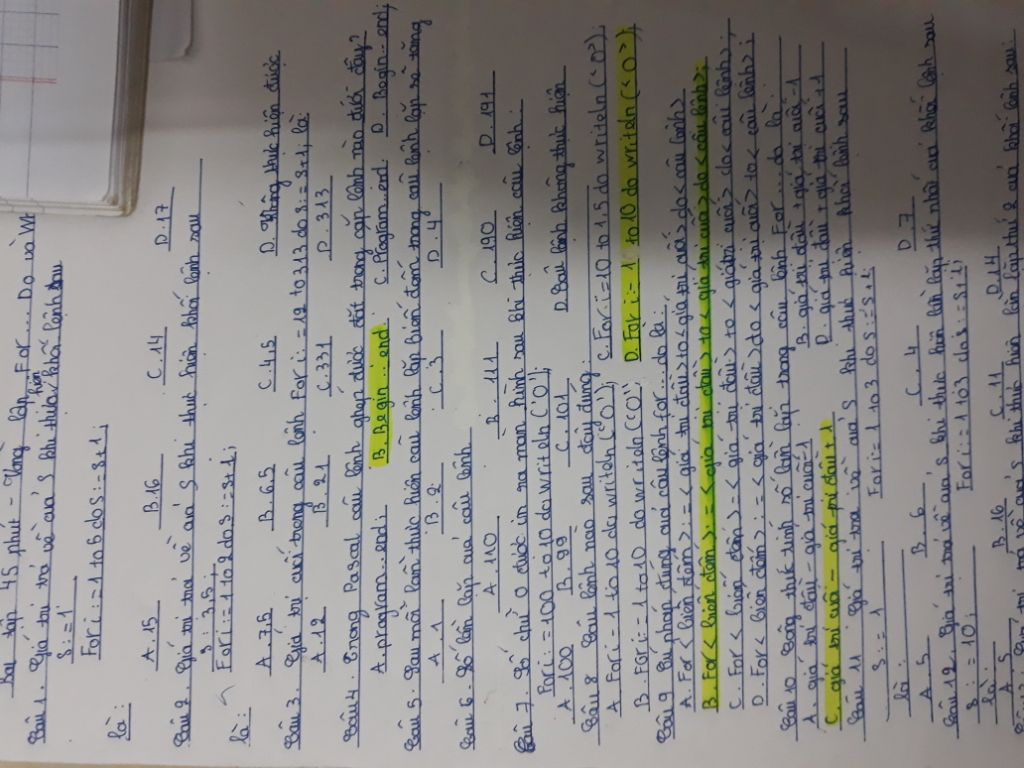 Bài tập 45 phút - Vòng lặp For.... Do và Wh
Câu 1. Giá trị trả về của s khi thực hiện khối lệnh sau
s:=1
For i:=1 to 5 do s:=s+1;
là:
A.15 B.16 C.14 D.17
Câu 2. Giá trị trả về của s khi thực hiện khối lệnh sau
s:=3,5;
For i:=1 to 2 do s:=s+1;
là:
A.7.5 B.6.5 C.4.5 D. Không thực hiện được
Câu 3. Giá trị cuối trong câu lệnh For i:=12 to 313 do s:=s+1, là:
A.12 B.21 C.331 D.313
Câu 4. Trong Pascal câu lệnh ghép được đặt trong cặp lệnh nào dưới đây?
A.program...end. B. Begin...end C. Program...end. D. Begin...end;
Câu 5. Sau mỗi lần thực hiện câu lệnh lặp biến đếm trong câu lệnh lặp sẽ tăng
A.1 B.2 C.3 D.4
Câu 6 - Số lần lặp của câu lệnh
A.110 B.111 C.190 D.191
Câu 7. Số chữ O được in ra màn hình sau khi thực hiện câu lệnh:
For i:=100 to 10 do writeln ('O');
A.100 B.99 C.101 D. Câu lệnh không thực hiện
Câu 8 Câu lệnh nào sau đây đúng:
A For i=1 to 10 do writeln ('O'); C. For i:=10 to 1,5 do writeln ('O');
B. For i:=1 to 10 do writeln ('O' D. For i:=1 to 10 do writeln ('O');
Câu 9 Cú pháp đúng của câu lệnh for...do là:
A. For <biến đếm>:=<giá trị đầu> to <giá trị cuối> do <câu lệnh>
B. For <biến đếm>:=<giá trị đầu> to <giá trị cuối> do <câu lệnh>;
C. For <biến đếm>=<giá trị đầu> to <giá trị cuối> do <câu lệnh>;
D. For <biến đếm>:=<giá trị đầu> do <giá trị cuối> to <câu lệnh>;
Câu 10 Công thức tính số lần lặp trong câu lệnh For.....do là
A. giá trị đầu - giá trị cuối-1 B. giá trị đầu + giá trị cuối-1
C. giá trị cuối - giá trị đầu+1 D. giá trị đầu + giá trị cuối+1
Câu 11 Giá trị trả về của s khi thực hiện khối lệnh sau
s:=1
For i:=1 to 3 do s:=s+1;
là:
A.5 B.6 C.4 D.7
Câu 12. Giá trị trả về của s khi thực hiện lần lặp thứ nhất của khối lệnh sau
s:=10;
For i:=1 to 3 do s:=s+1;
là:
A 5 B.16 C.11 D.14
lần lặp thứ 2 của khối lệnh sau: